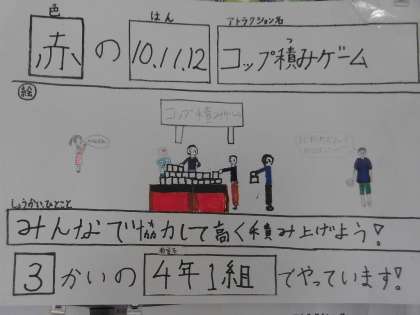 色 はん アトラクション名
赤 の 10.11.12 コップ積みゲーム
つ
絵
コップ積みゲーム
しょうかいひとこと
みんなで協力して高く積み上げよう!
3かいの4年1組でやっています!